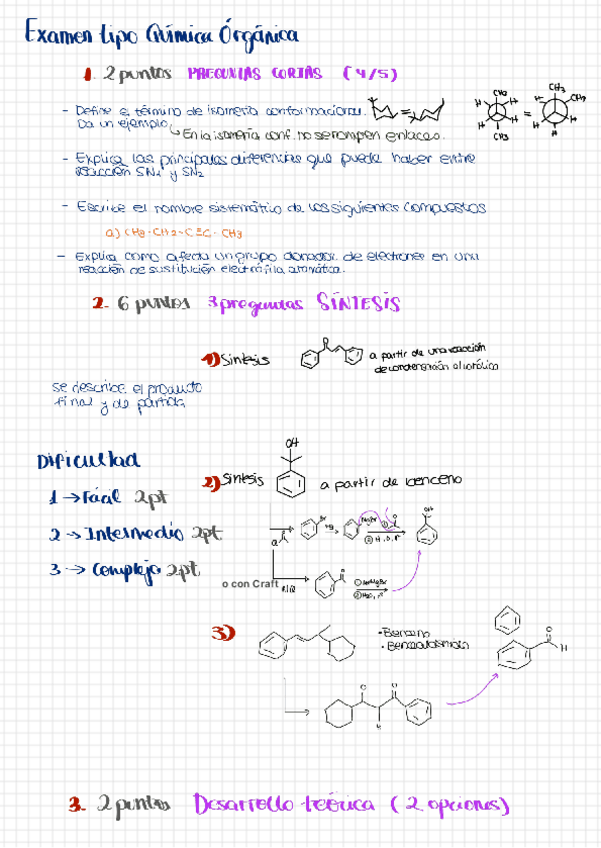 Examen tipo Química Orgánica
1. 2 puntos PREGUNTAS CORTAS (4/5)
- Define el término de isomería conformacional.
Da un ejemplo
En la isomería conf. no se rompen enlaces.
CH3
H
H
H
H
CH3
=
CH3
H
CH3
H
H
H
- Explica las principales diferencias que puede haber entre
reacción SN1 y SN2
- Escribe el nombre sistemático de los siguientes compuestos
a) CH3-CH2-C≡C-CH3
- Explica como afecta un grupo donador de electrones en una
reacción de sustitución electrófila aromática.
2. 6 puntos 3 preguntas SÍNTESIS
1) Síntesis
O
a partir de una reacción
de condensación aldólica
se describe el producto
final y de partida
Dificultad
1 → Fácil 2pt
2 → Intermedio 2pt
3 → Complejo 2pt
2) Síntesis
OH
a partir de benceno
Br
Mg
MgBr
OH
o con Craft
3)
- Benceno
- Benzaldehído
O
H
O
O
3. 2 puntos Desarrollo teórica (2 opciones)